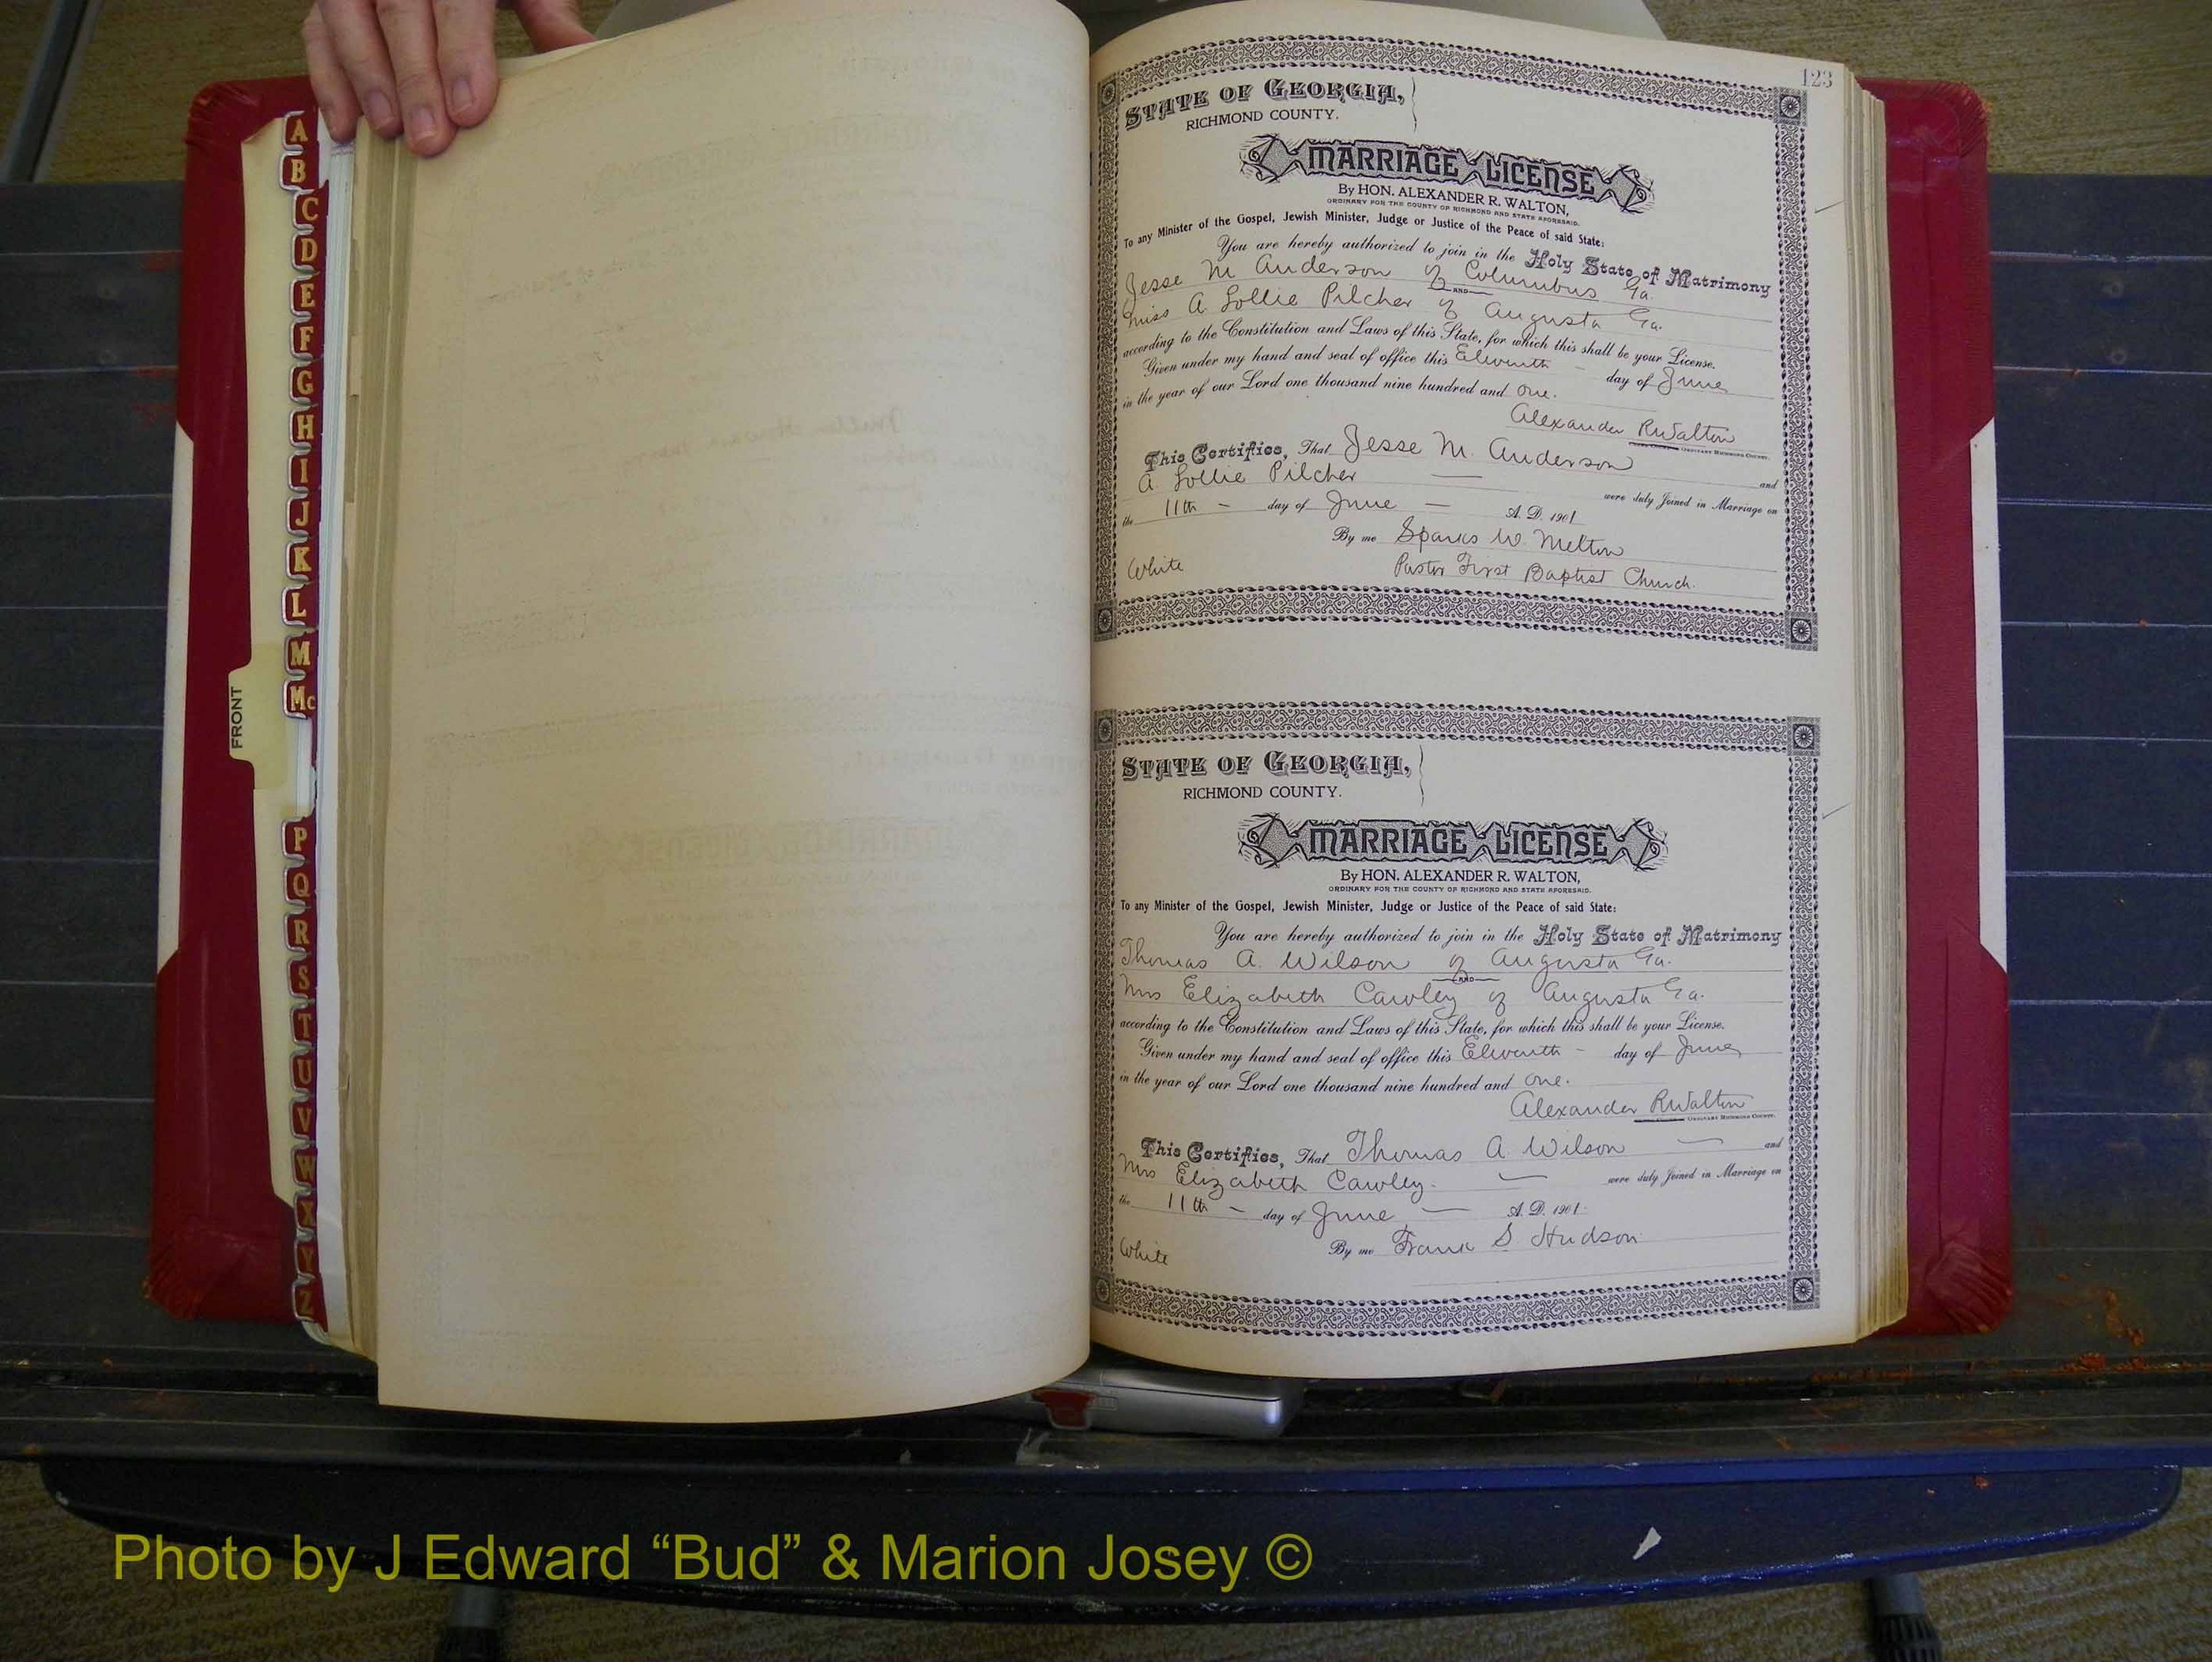 123
STATE OF GEORGIA,
RICHMOND COUNTY.
MARRIAGE LICENSE
By HON. ALEXANDER R. WALTON,
ORDINARY FOR THE COUNTY OF RICHMOND AND STATE AFORESAID.
To any Minister of the Gospel, Jewish Minister, Judge or Justice of the Peace of said State:
You are hereby authorized to join in the Holy State of Matrimony
Jesse M Anderson of Columbus Ga.
AND
Miss A Lollie Pilcher of Augusta Ga.
according to the Constitution and Laws of this State, for which this shall be your License.
Given under my hand and seal of office this Eleventh - day of June
in the year of our Lord one thousand nine hundred and one.
Alexander R Walton
ORDINARY RICHMOND COUNTY.
This Certifies, That Jesse M. Anderson and
A. Lollie Pilcher — were duly Joined in Marriage on
the 11th - day of June — A. D. 1901
By me Sparks W. Melton
White Pastor First Baptist Church.
STATE OF GEORGIA,
RICHMOND COUNTY.
MARRIAGE LICENSE
By HON. ALEXANDER R. WALTON,
ORDINARY FOR THE COUNTY OF RICHMOND AND STATE AFORESAID.
To any Minister of the Gospel, Jewish Minister, Judge or Justice of the Peace of said State:
You are hereby authorized to join in the Holy State of Matrimony
Thomas A. Wilson of Augusta Ga.
AND
Mrs Elizabeth Cawley of Augusta Ga.
according to the Constitution and Laws of this State, for which this shall be your License.
Given under my hand and seal of office this Eleventh - day of June
in the year of our Lord one thousand nine hundred and one.
Alexander R Walton
ORDINARY RICHMOND COUNTY.
This Certifies, That Thomas A. Wilson — and
Mrs Elizabeth Cawley. — were duly Joined in Marriage on
the 11th - day of June — A. D. 1901.
By me Frank S Hudson
White
A
B
C
D
E
F
G
H
I
J
K
L
M
Mc
P
Q
R
S
T
U
V
W
X
Y
Z
FRONT
Photo by J Edward “Bud” & Marion Josey ©